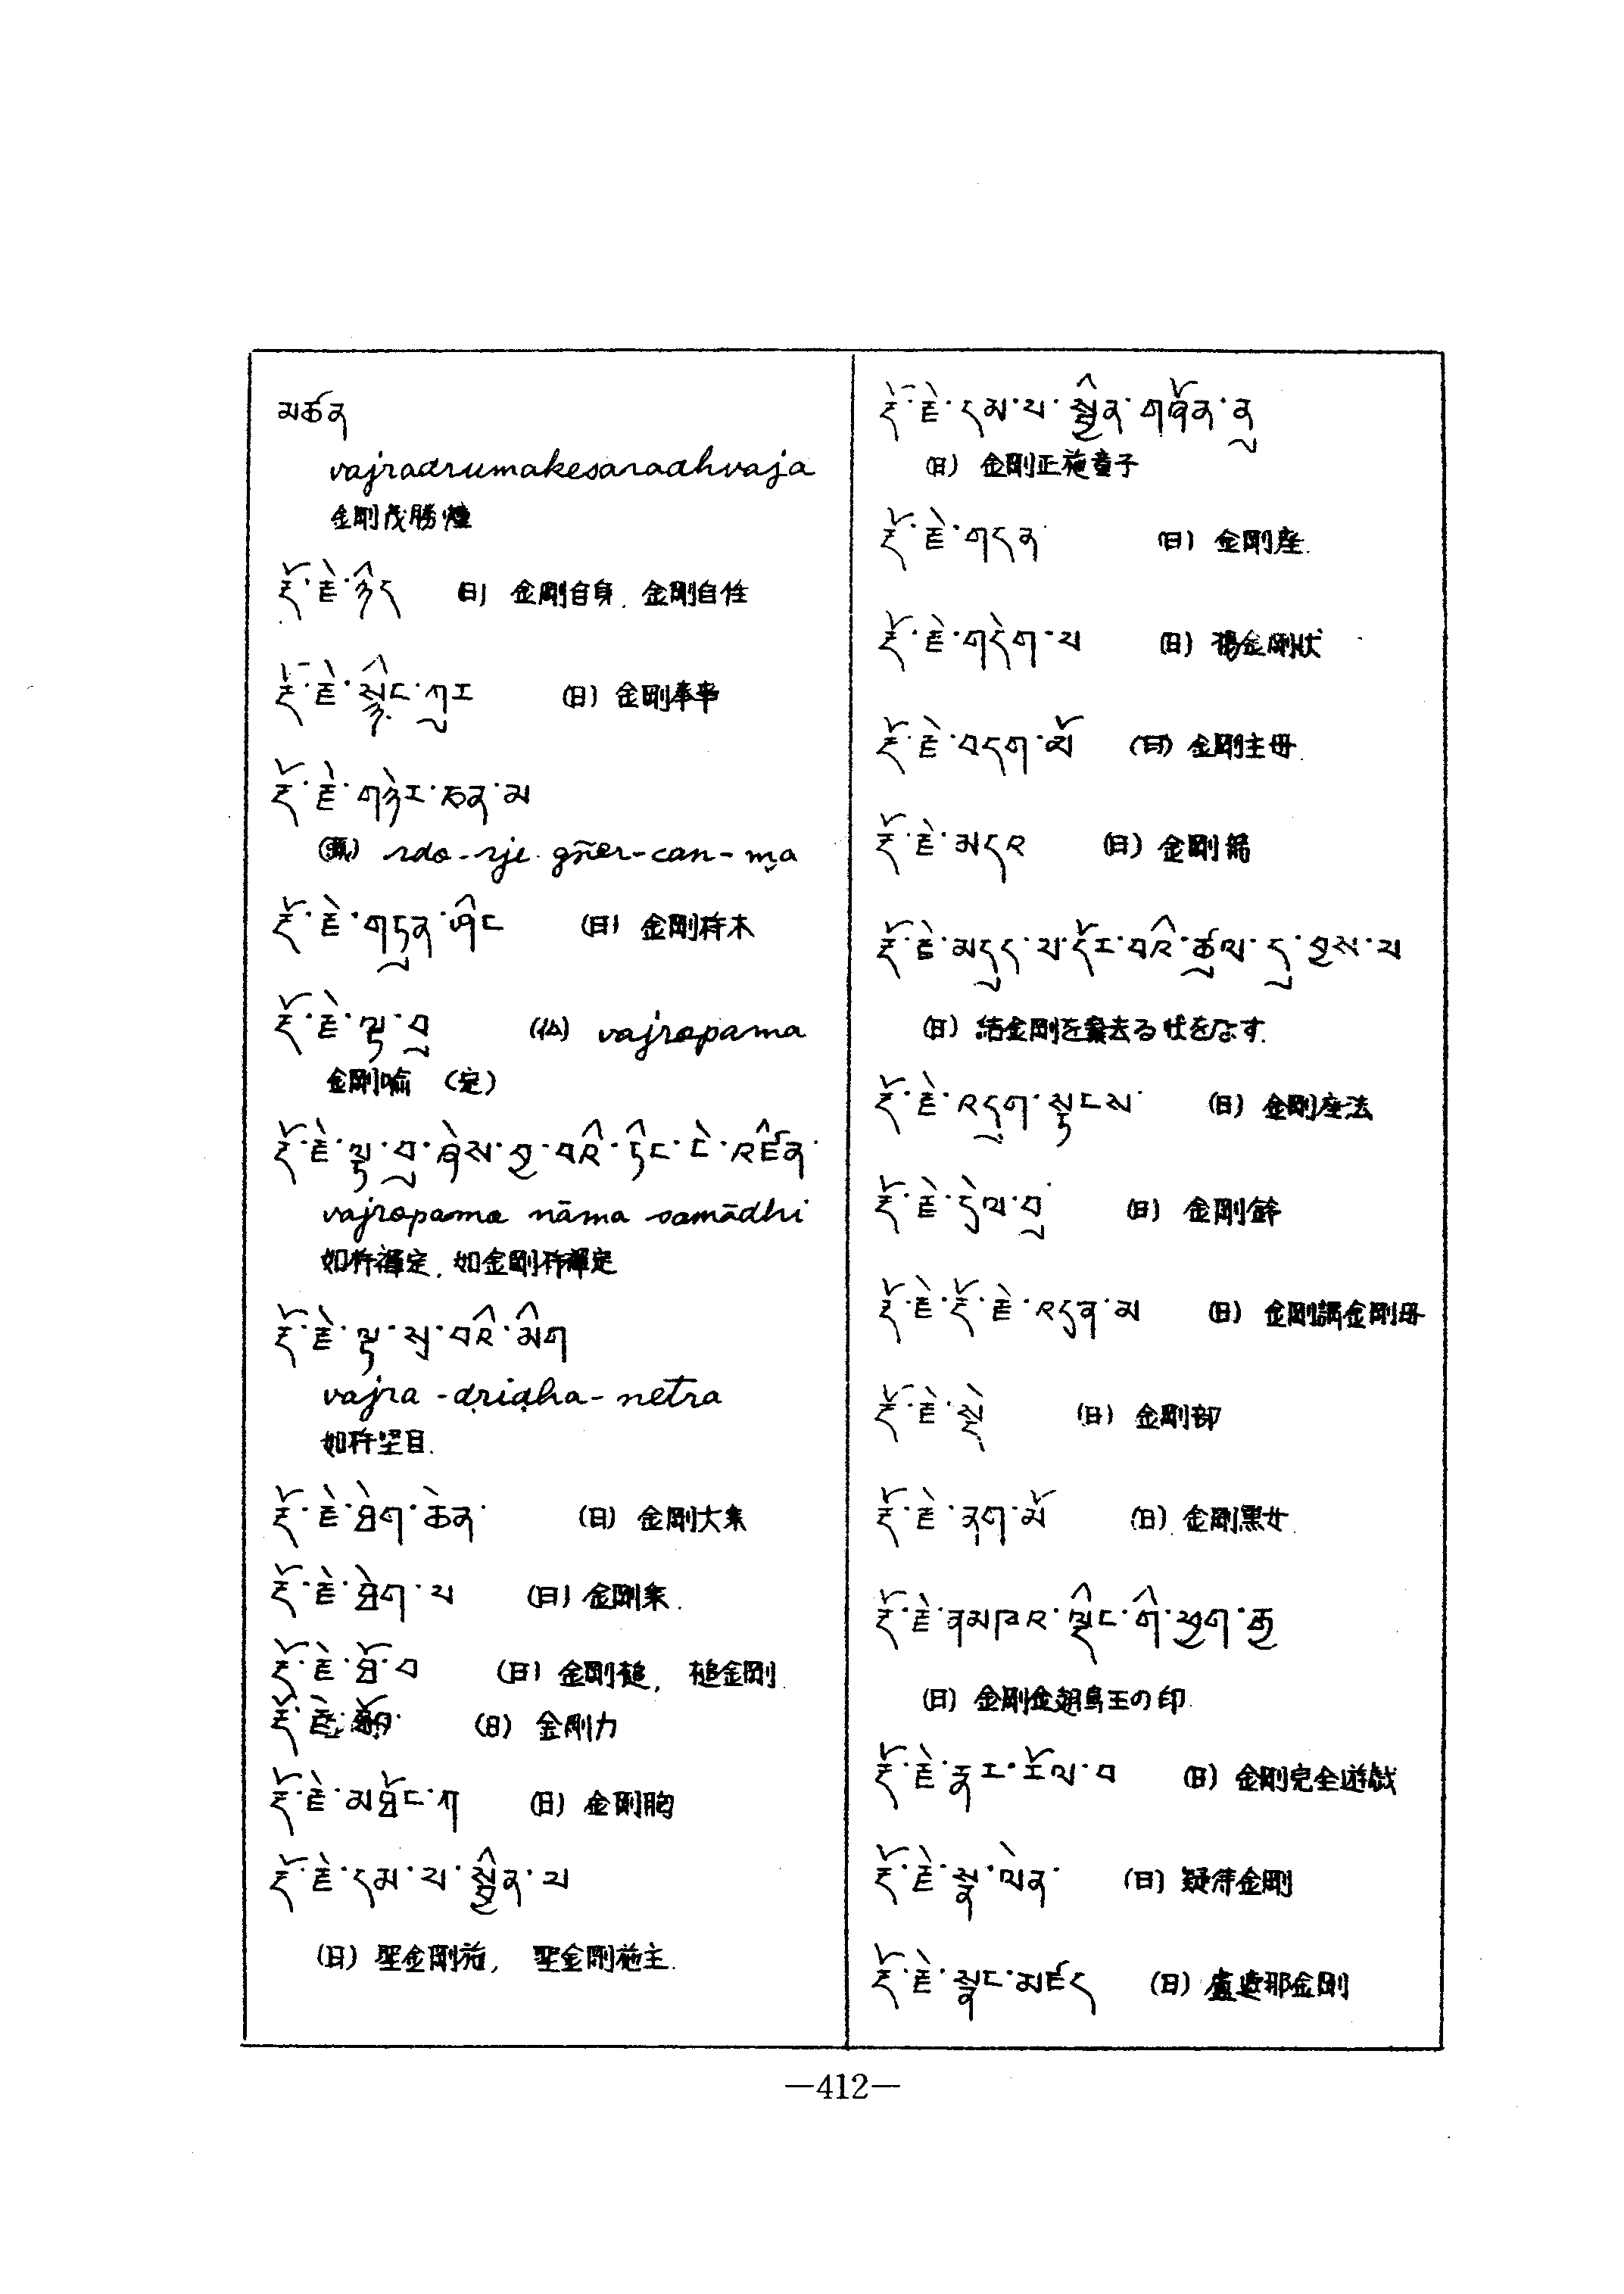 མཚན
vajradrumakesaradhvaja
金剛茂勝幢
རྡོ་རྗེ་ཉིད (日) 金剛自身, 金剛自性
རྡོ་རྗེ་སྙིང་ཀུར (日) 金剛奉事
རྡོ་རྗེ་གཉེར་ཅན་མ
rdo-rje gñer-can-ma
རྡོ་རྗེ་གཏུན་ཤིང (日) 金剛杵木
རྡོ་རྗེ་ལྟ་བུ (仏) vajropama
金剛喩 (定)
རྡོ་རྗེ་ལྟ་བུ་ཞེས་བྱ་བའི་ཏིང་ངེ་འཛིན་
vajropama nāma samādhi
如杵禪定, 如金剛杵禪定
རྡོ་རྗེ་ལྟ་སྲ་བའི་མིག
vajra-dṛiḍha-netra
如杵坚目.
རྡོ་རྗེ་ཐེག་ཆེན་ (日) 金剛大乗
རྡོ་རྗེ་ཐེག་པ (日) 金剛乗.
རྡོ་རྗེ་ཐོ་བ (日) 金剛槌, 槌金剛
རྡོ་རྗེ (日) 金剛力
རྡོ་རྗེ་མཐོང་ཀ (日) 金剛胸
རྡོ་རྗེ་དམ་པ་སྦྱིན་པ
(日) 聖金剛施, 聖金剛施主.
རྡོ་རྗེ་དམ་པ་སྦྱིན་གཞོན་ནུ
(日) 金剛正施童子
རྡོ་རྗེ་གདན་ (日) 金剛座.
རྡོ་རྗེ་གདེག་པ (日) 揚金剛状
རྡོ་རྗེ་བདག་མོ (日) 金剛主母.
རྡོ་རྗེ་མདའ (日) 金剛箭
རྡོ་རྗེ་མདུད་པ་དོར་བའི་ཚུལ་དུ་བྱས་པ
(日) 結金剛を棄去る状をなす.
རྡོ་རྗེ་འདུག་སྟངས་ (日) 金剛座法
རྡོ་རྗེ་དྲིལ་བུ (日) 金剛鈴
རྡོ་རྗེ་རྡོ་རྗེ་འདུན་མ (日) 金剛謂金剛母
རྡོ་རྗེ་སྡེ (日) 金剛部
རྡོ་རྗེ་ནག་མོ (日) 金剛黒女
རྡོ་རྗེ་ནམཁའ་ལྡིང་གི་ཕྱག་རྒྱ
(日) 金剛金翅鳥王の印
རྡོ་རྗེ་རྣར་རོལ་བ (日) 金剛完全遊戯
རྡོ་རྗེ་སྣ་ལེན་ (日) 疑待金剛
རྡོ་རྗེ་སྣང་མཛད (日) 盧遮那金剛
—412—